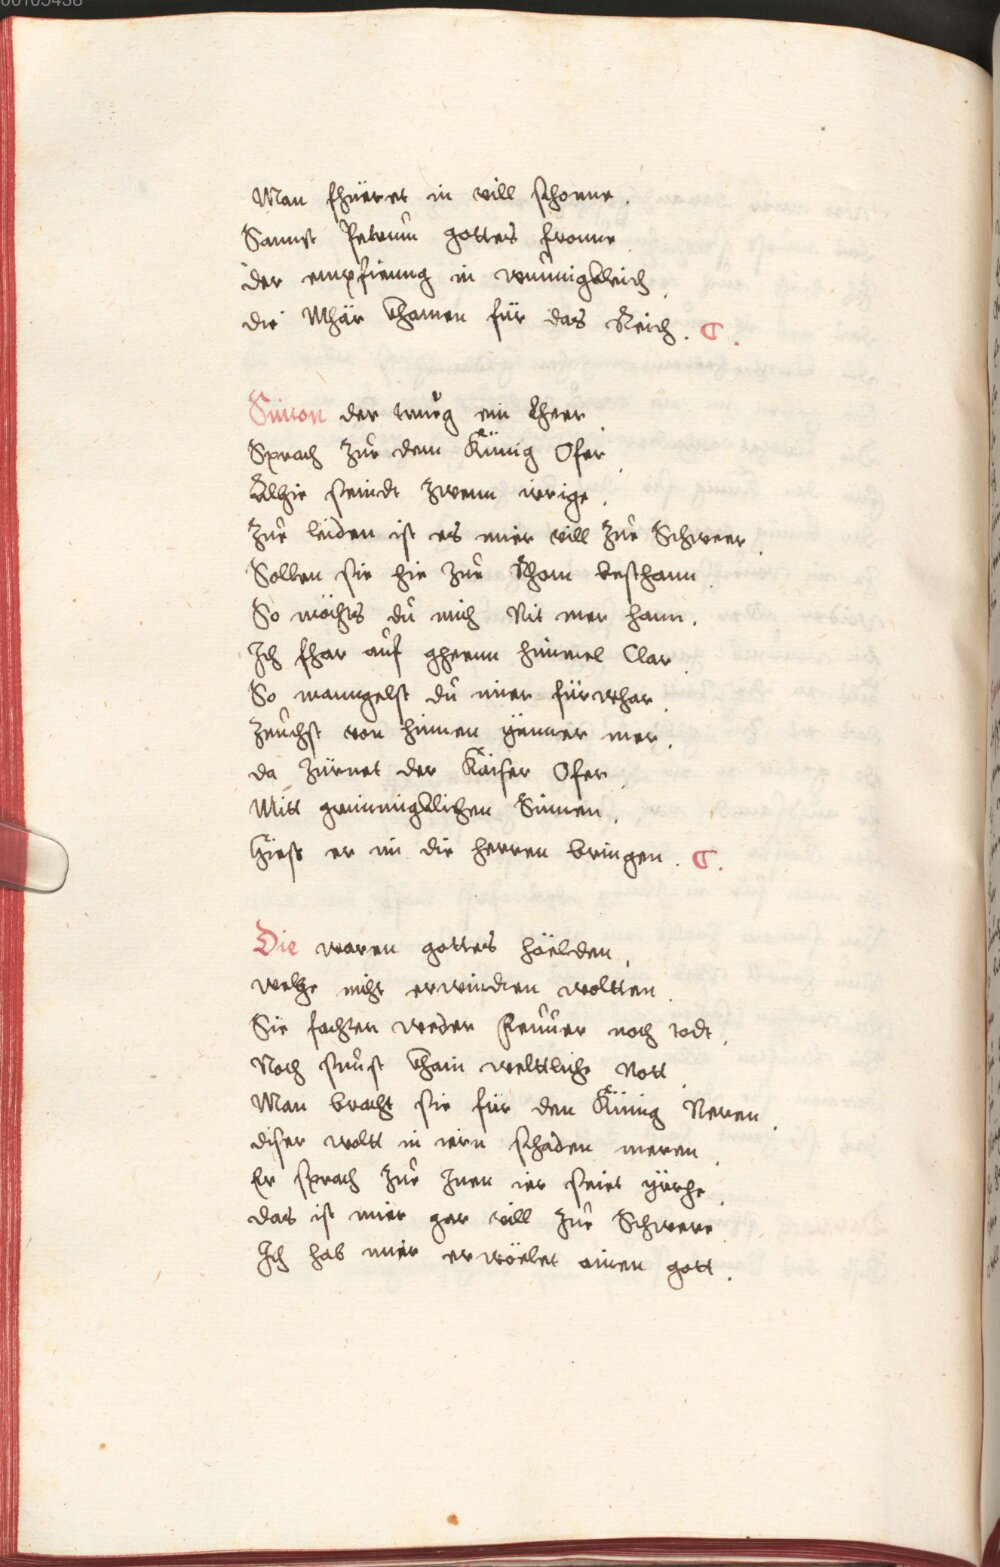 00105438
Man fhüeret in vill schonne.
Sannst Petrum gottes fronne.
der empfienng in wunnigkleich.
die Mhär khamen für das Reich. C.
Simon der trueg ein Eheer.
Sprach zue dem Künig Ofer.
Alhie seindt zwenn irrige.
Zue leiden ist es mier vill zue Schweer.
Sollen sie hie zue Rhom besthann.
So möchts du mich Nit mer hann.
Ich fhar auf gheenn himmel Clar.
So manngelst du mier fürwhar.
Zeuchst von hinnen ymmer mer.
da zürnet der Kaiser Ofer.
Mitt grimmigklichen Sinnen.
Hiess er im die herren bringen. C.
Die waren gottes häelden.
welhe nicht erwindten woltten.
Sie fochten weder Feuwer noch todt.
Noch sunst khain welttliche Nott.
Man bracht sie für den Künig Neren.
diser woltt in iren schaden meren.
Er sprach zue Inen ier seiet yrrhe.
das ist mier gar vill zue Schwere.
Ich hab mier erwöelet ainen gott.